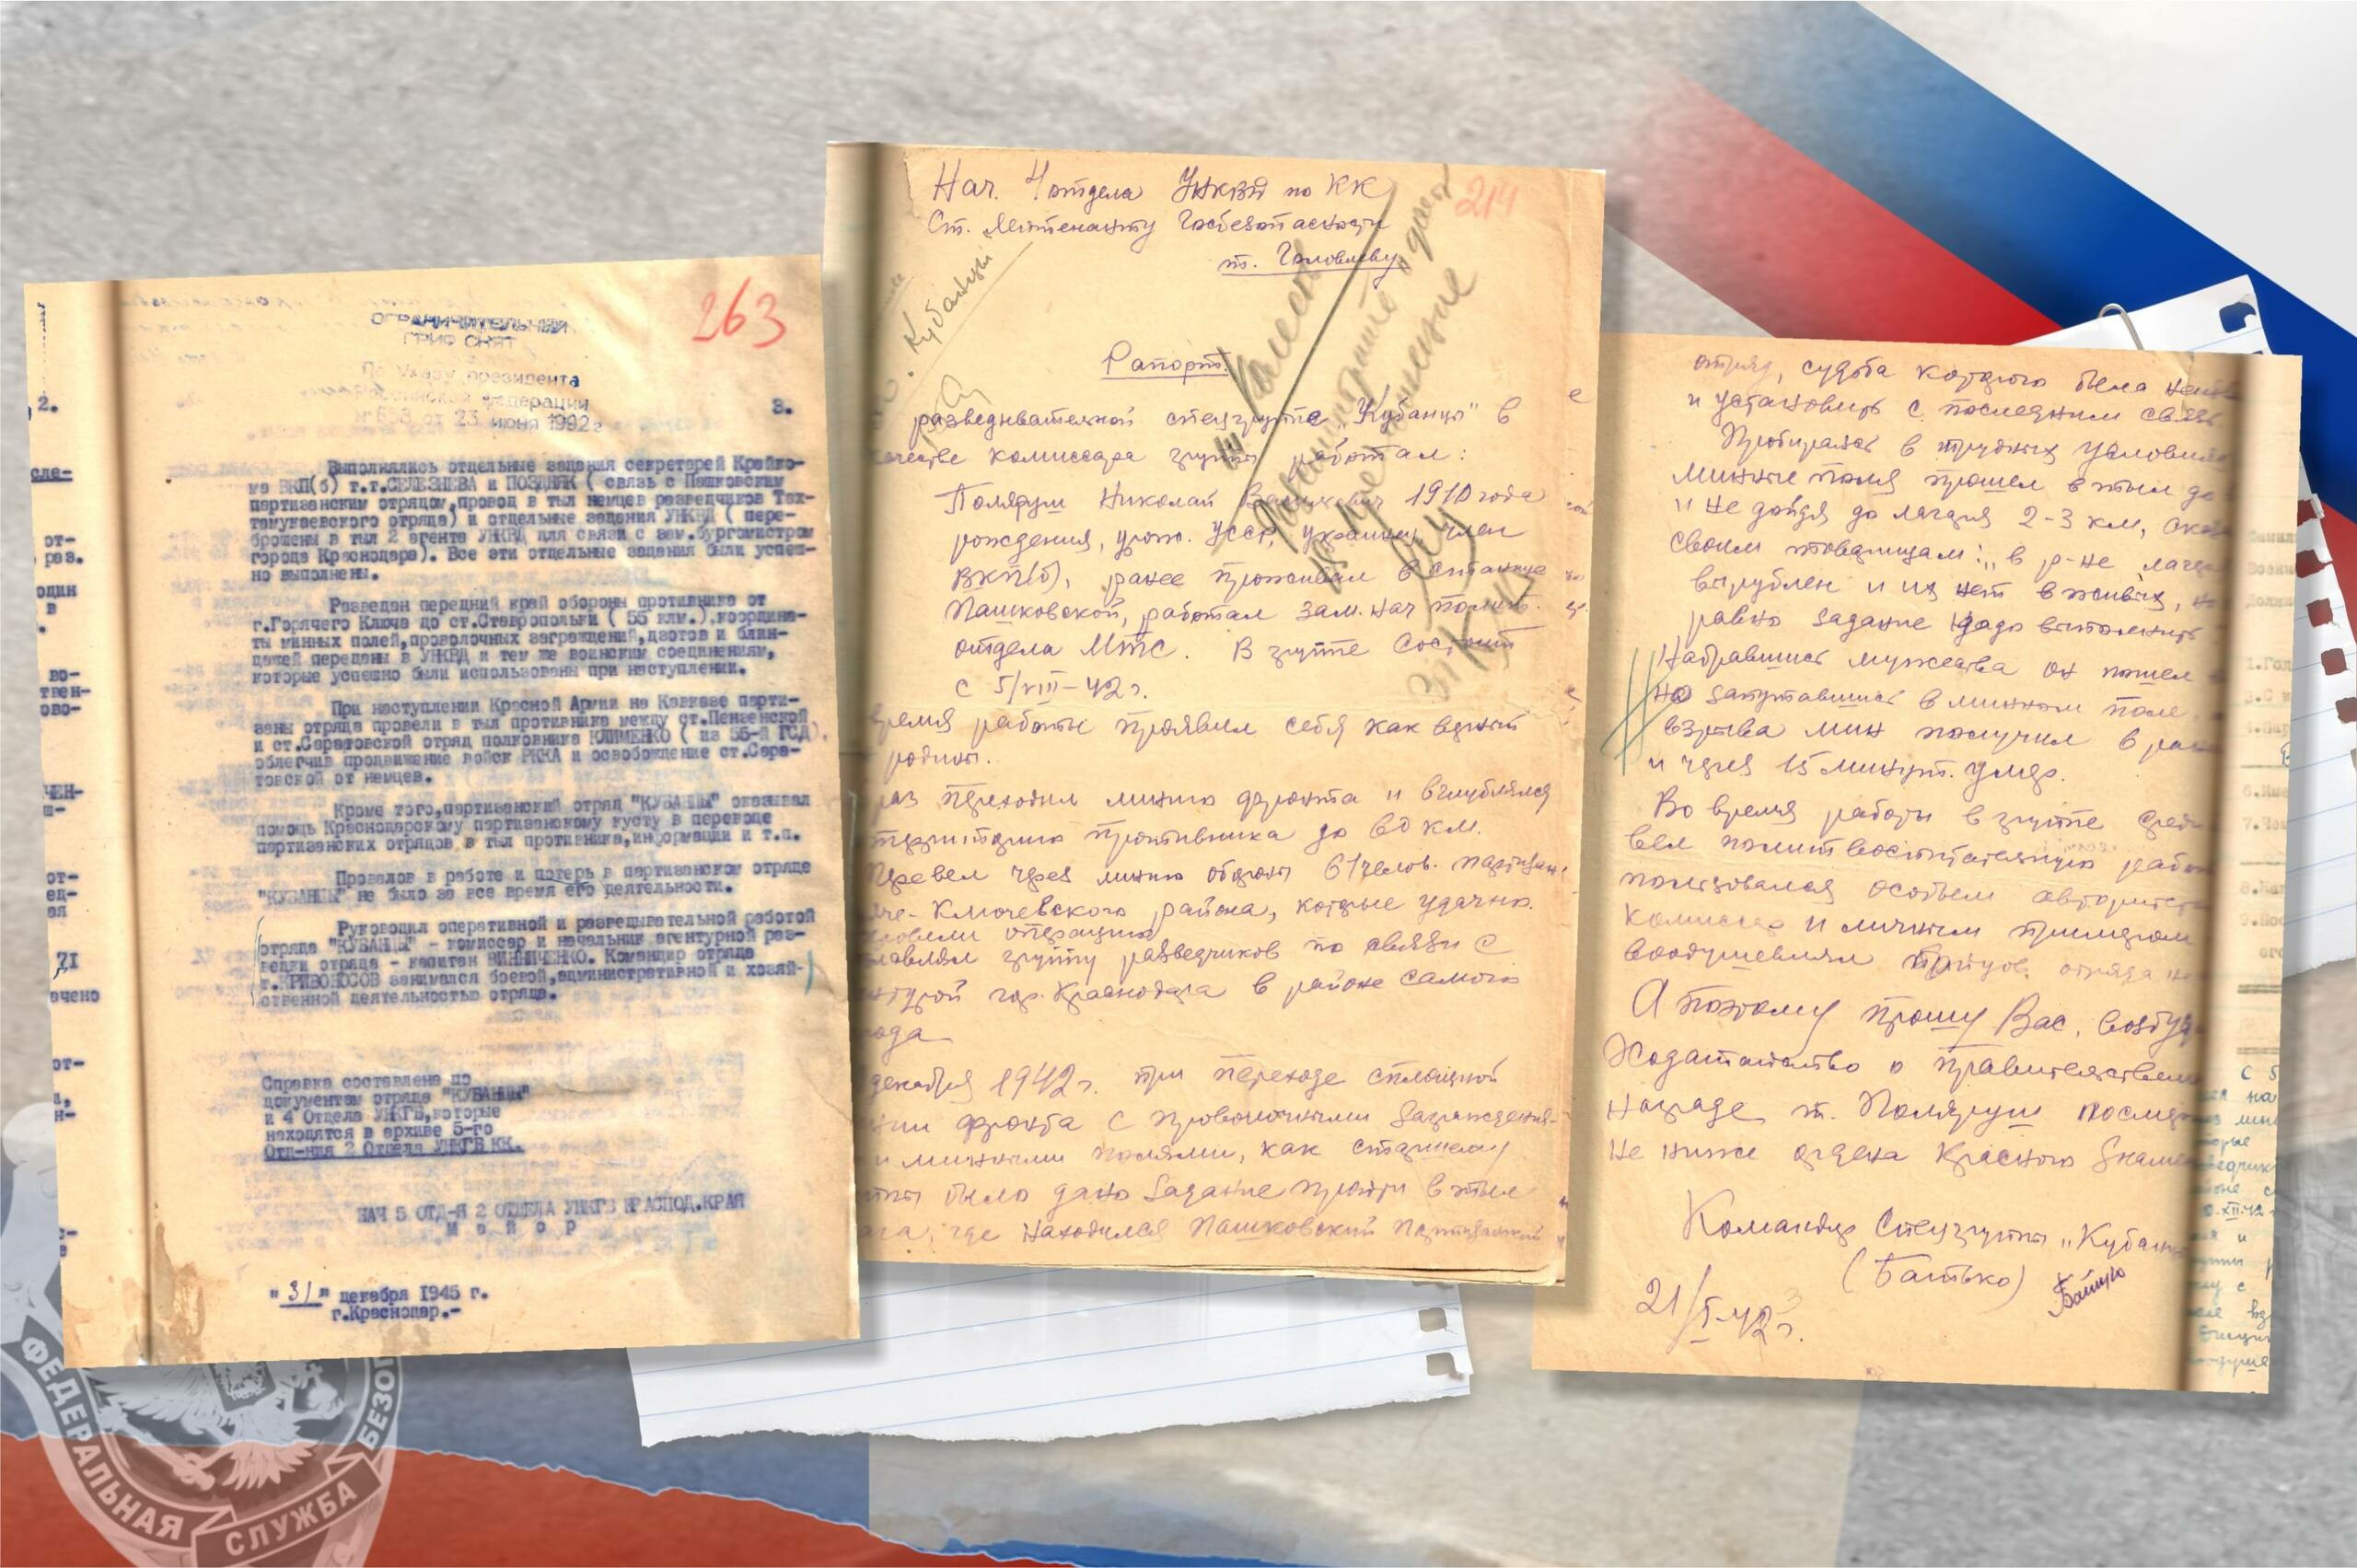 263
ОГРАНИЧИТЕЛЬНЫЙ
ГРИФ СНЯТ
По Указу президента
Российской Федерации
№ 658 от 23 июня 1992 г
2.
3.
Выполнялись отдельные задания секретарей Крайко-
ма ВКП(б) т.т.СЕЛЕЗНЕВА и ПОЗДНЯК ( связь с Пашковским
партизанским отрядом,провод в тыл немцев разведчиков Тах-
тамукаевского отряда) и отдельные задания УНКВД ( пере-
брошены в тыл 2 агента УНКВД для связи с зам.бургомистром
города Краснодара). Все эти отдельные задания были успеш-
но выполнены.
Разведан передний край обороны противника от
г.Горячего Ключа до ст.Ставропольки ( 55 клм.).координа-
ты минных полей,проволочных заграждений,дзотов и блин-
дажей переданы в УНКВД и тем же воинским соединениям,
которые успешно были использованы при наступлении.
При наступлении Красной Армии на Кавказе парти-
заны отряда провели в тыл противника между ст.Пензенской
и ст.Саратовской отряд полковника КЛИМЕНКО ( из 55-й ГСД),
облегчив продвижение войск РККА и освобождение ст.Сара-
товской от немцев.
Кроме того,партизанский отряд "КУБАНЦЫ" оказывал
помощь Краснодарскому партизанскому кусту в переводе
партизанских отрядов в тыл противника,информации и т.п.
Провалов в работе и потерь в партизанском отряде
"КУБАНЦЫ" не было за все время его деятельности.
Руководил оперативной и разведывательной работой
отряда "КУБАНЦЫ" - комиссар и начальник агентурной раз-
ведки отряда - капитан ВИННИЧЕНКО. Командир отряда
т.КРИВОНОСОВ занимался боевой,административной и хозяй-
ственной деятельностью отряда.
Справка составлена по
документам отряда "КУБАНЦЫ"
и 4 Отдела УНКГБ,которые
находятся в архиве 5-го
Отд-ния 2 Отдела УНКГБ КК.
НАЧ 5 ОТД-Я 2 ОТДЕЛА УНКГБ КРАСНОД.КРАЯ
м а й о р
"31" декабря 1945 г.
г.Краснодар.-
214
Нач. 4 отдела УНКВД по КК
Ст. Лейтенанту Госбезопасности
т. Головлеву
Кубанцы
Рапорт.
разведывательной спецгруппе "Кубанцы" в
качестве комиссара группы работал:
Полядуш Николай 1910 года
рождения, урож. УССР, украинец, член
ВКП(б), ранее проживал в станице
Пашковской, работал зам. нач полит.
отдела МТС. В группе состоит
с 5/VIII-42 г.
время работы проявил себя как верный
родины.
раз переходил линию фронта и вглублялся
территорию противника до 60 км.
Перевел через линию обороны 61 челов. партизан
че-Ключевского района, которые удачно
провели операцию
главлял группу разведчиков по связи с
турой гор. Краснодара в районе самого
рода
декабря 1942 г. при переходе сплошной
нии фронта с проволочными заграждения-
и минными полями, как старшему
ппы было дано задание пройти в тыл
ага, где находился Пашковский Партизанский
отряд, судьба которого была неиз
и установить с последним связь
Пробираясь в трудных условиях
минные поля прошел в тыл до
и не дойдя до лагеря 2-3 км, сказ
своим товарищам: "в р-не лагер
вырублен и их нет в живых, но
равно задание надо выполнить
Набравшись мужества он пошел
но запутавшись в минном поле
взрыва мин получил 6 ран
и через 15 минут. умер.
Во время работы в группе сред
вел политвоспитательную работ
пользовался особым авторитет
комиссар и личным примером
воодушевлял отряда
А поэтому прошу Вас, возбуд
Ходатайство о правительствен
награде т. Полядуш посмер
не ниже ордена Красного Знаме
Командир Спецгруппы "Кубанц
(Батько)
21/I-42 г.
ФЕДЕРАЛЬНАЯ
СЛУЖБА
БЕЗОП